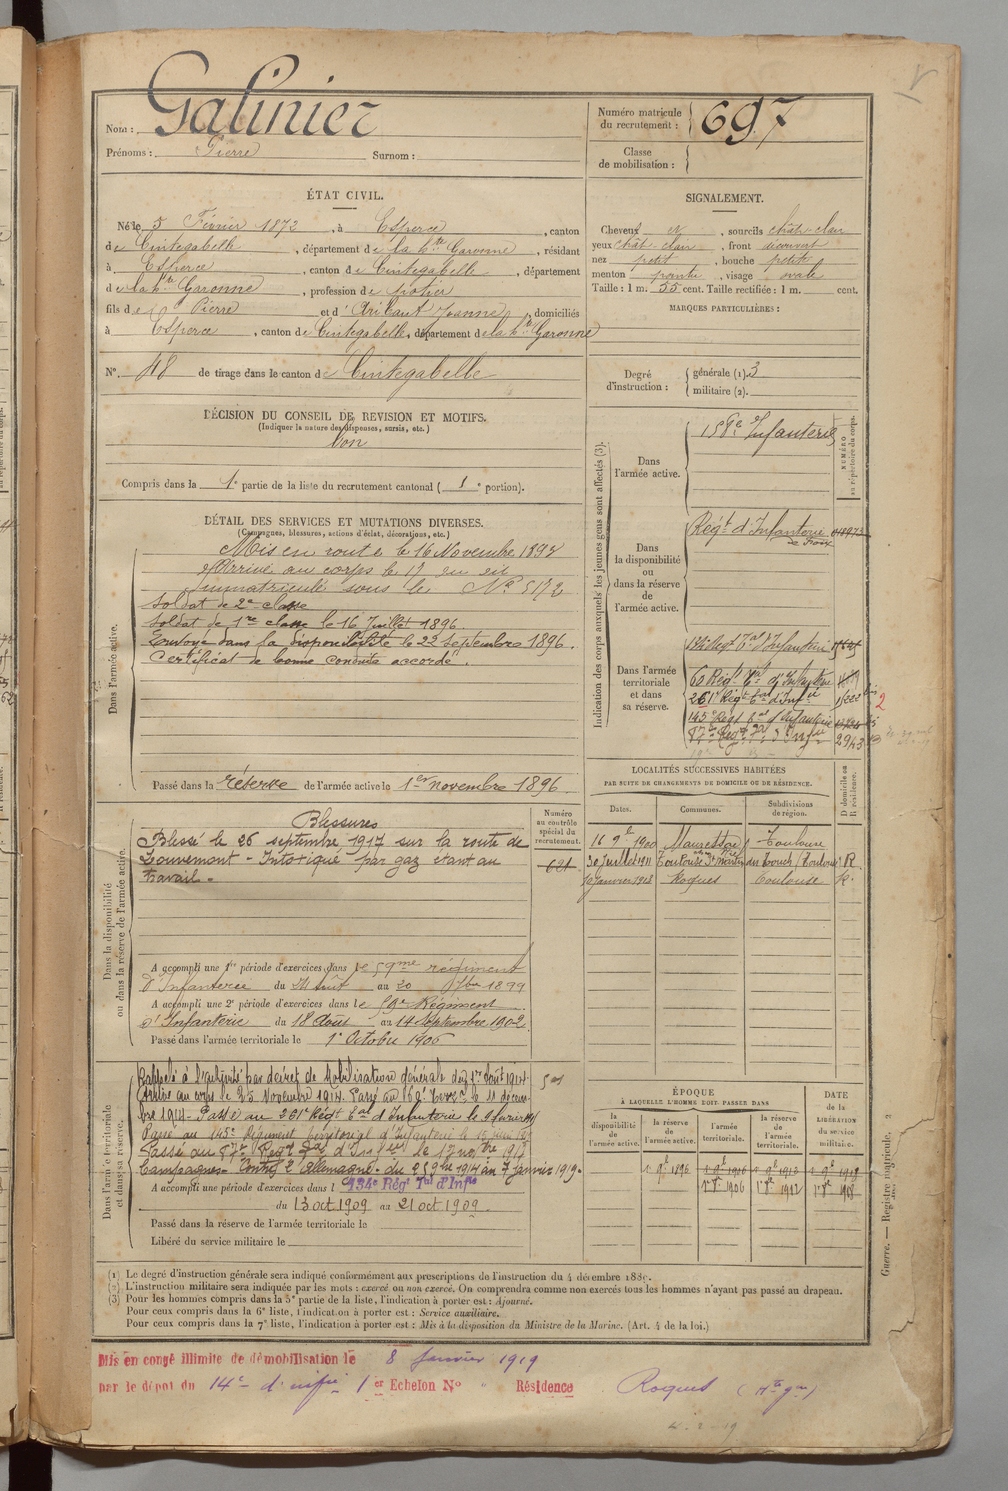 Nom : Galinier
Prénoms : Pierre Surnom :
Numéro matricule
du recrutement : 697
Classe
de mobilisation :
ÉTAT CIVIL.
Né le 5 Février 1872, à Esperce, canton
de Cintegabelle, département de la hte Garonne, résidant
à Esperce, canton de Cintegabelle, département
de la hte Garonne, profession de
fils de Pierre et d' Jeanne, domiciliés
à Esperce, canton de Cintegabelle, département de la hte Garonne
N° 48 de tirage dans le canton de Cintegabelle
DÉCISION DU CONSEIL DE REVISION ET MOTIFS.
(Indiquer la nature des dispenses, sursis, etc.)
bon
Compris dans la 1e partie de la liste du recrutement cantonal ( 1e portion).
SIGNALEMENT.
Cheveux , sourcils chât-clair
yeux chât-clair, front découvert
nez petit, bouche petite
menton pointu, visage ovale
Taille : 1 m. 55 cent. Taille rectifiée : 1 m. cent.
MARQUES PARTICULIÈRES :
Degré
d'instruction :
générale (1). 3
militaire (2).
DÉTAIL DES SERVICES ET MUTATIONS DIVERSES.
(Campagnes, blessures, actions d'éclat, décorations, etc.)
Dans l'armée active.
Mis en route le 16 Novembre 1893
Arrivé au corps le 17 du dit
Immatriculé sous le No 5172
Soldat de 2e classe
Soldat de 1re classe le 16 Juillet 1896.
Envoyé dans la disponibilité le 23 Septembre 1896.
Certificat de bonne conduite accordé.
Passé dans la réserve de l'armée active le 1er novembre 1896.
Indication des corps auxquels les jeunes gens sont affectés (3).
NUMÉRO
au répertoire du corps.
Dans
l'armée active.
158e d'Infanterie
Dans
la disponibilité
ou
dans la réserve
de
l'armée active.
Régt d'Infanterie
de Foix
Dans l'armée
territoriale
et dans
sa réserve.
134e Régt Tal d'Infanterie
261e Régt Tal d'Infie
145e Régt Tal d'Infanterie
87e Régt Tal d'Infie
2
Dans la disponibilité
ou dans la réserve de l'armée active.
Blessures
Blessé le 26 septembre 1917 sur la route de
Louvemont - Intoxiqué par gaz étant au
travail -
Numéro
au contrôle
spécial du
recrutement.
621
A accompli une 1re période d'exercices dans le 59me régiment
d'Infanterie du 24 août au 20 7bre 1899
A accompli une 2e période d'exercices dans le 59e Régiment
d'Infanterie du 18 Août au 14 Septembre 1902
Passé dans l'armée territoriale le 1er Octobre 1906
LOCALITÉS SUCCESSIVES HABITÉES
PAR SUITE DE CHANGEMENTS DE DOMICILE OU DE RÉSIDENCE.
Dates. Communes. Subdivisions
de région. D domicile ou
R résidence.
16 9bre 1900 Mauressac Toulouse
30 Juillet 1911 Toulouse St Martin du Touch Toulouse R
10 Janvier 1913 Roques Toulouse R.
Dans l'armée territoriale
et dans sa réserve.
Rappelé à l'activité par décret de Mobilisation générale du 1er Août 1914
Arrivé au corps le 25 Novembre 1914. Passé au le 11 décem-
bre 1914. Passé au 261e Régt Tal d'Infanterie le
Passé au 145e Régiment territorial d'Infanterie le
Passé au 87e Régt Tal d'Infie le
Campagnes - Contre l'Allemagne du 25 9bre 1914 au 7 janvier 1919.
A accompli une période d'exercices dans le 134e Régt Tal d'Infie
du 13 oct 1909 au 21 oct 1909
Passé dans la réserve de l'armée territoriale le
Libéré du service militaire le
ÉPOQUE
À LAQUELLE L'HOMME DOIT PASSER DANS
DATE
de la
LIBÉRATION
du service
militaire.
la
disponibilité
de
l'armée active.
la réserve
de
l'armée active.
l'armée
territoriale.
la réserve
de
l'armée
territoriale.
1er 9bre 1896 1er 9bre 1906 1er 9bre 1912 1er 9bre 1918
1er 8bre 1906 1er 8bre 1912 1er 8bre 1918
(1) Le degré d'instruction générale sera indiqué conformément aux prescriptions de l'instruction du 4 décembre 1889.
(2) L'instruction militaire sera indiquée par les mots : exercé ou non exercé. On comprendra comme non exercés tous les hommes n'ayant pas passé au drapeau.
(3) Pour les hommes compris dans la 5e partie de la liste, l'indication à porter est : Ajourné.
Pour ceux compris dans la 6e liste, l'indication à porter est : Service auxiliaire.
Pour ceux compris dans la 7e liste, l'indication à porter est : Mis à la disposition du Ministre de la Marine. (Art. 4 de la loi.)
Guerre. — Registre matricule. 2
Mis en congé illimité de démobilisation le 8 Janvier 1919
par le dépôt du 14e d'infie 1er Echelon No " Résidence Roques (Hte Gne)